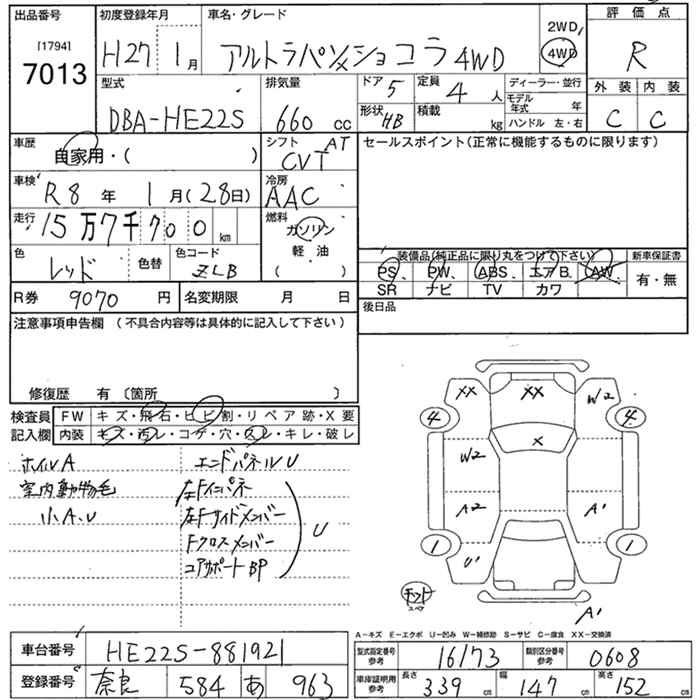 出品番号 初度登録年月 車名・グレード 2WD 評価点
[1794] 7013 H27年 1月 アルトラパンショコラ 4WD 4WD R
型式 排気量 ドア 5 定員 4人 ディーラー・並行 外装 内装
DBA-HE22S 660cc 形状 HB 積載 kg モデル年式 年 C C
ハンドル 左・右
車歴 自家用・( ) シフト AT CVT セールスポイント(正常に機能するものに限ります)
車検 R8年 1月(28日) 冷房 AAC
走行 15万7千700km 燃料 ガソリン 軽油 ( )
色 レッド 色替 色コード ZLB
装備品(純正品に限り丸をつけて下さい) 新車保証書
PS、PW、ABS、エアB、AW、 有・無
SR ナビ TV カワ
R券 9070円 名変期限 月 日 後日品
注意事項申告欄 (不具合内容等は具体的に記入して下さい)
修復歴 有〔箇所 〕
検査員記入欄 FW キズ・飛石・ヒビ割・リペア跡・X要
内装 キズ・汚レ・コゲ・スレ・キレ・破レ
ホイルA エンドパネルU
室内動物毛 左Fインパネ
小A.U 左Fサイドメンバー
Fクロスメンバー U
コアサポートBP
XX XX W2
4 4
X
W2
A2 A1
1 1
U1
A1
A-キズ E-エクボ U-凹み W-補修跡 S-サビ C-腐食 XX-交換済
車台番号 HE22S-881921 型式指定番号 参考 16173 類別区分番号 参考 0608
登録番号 奈良 584 あ 963 車庫証明用 参考 長さ 339cm 幅 147cm 高さ 152cm